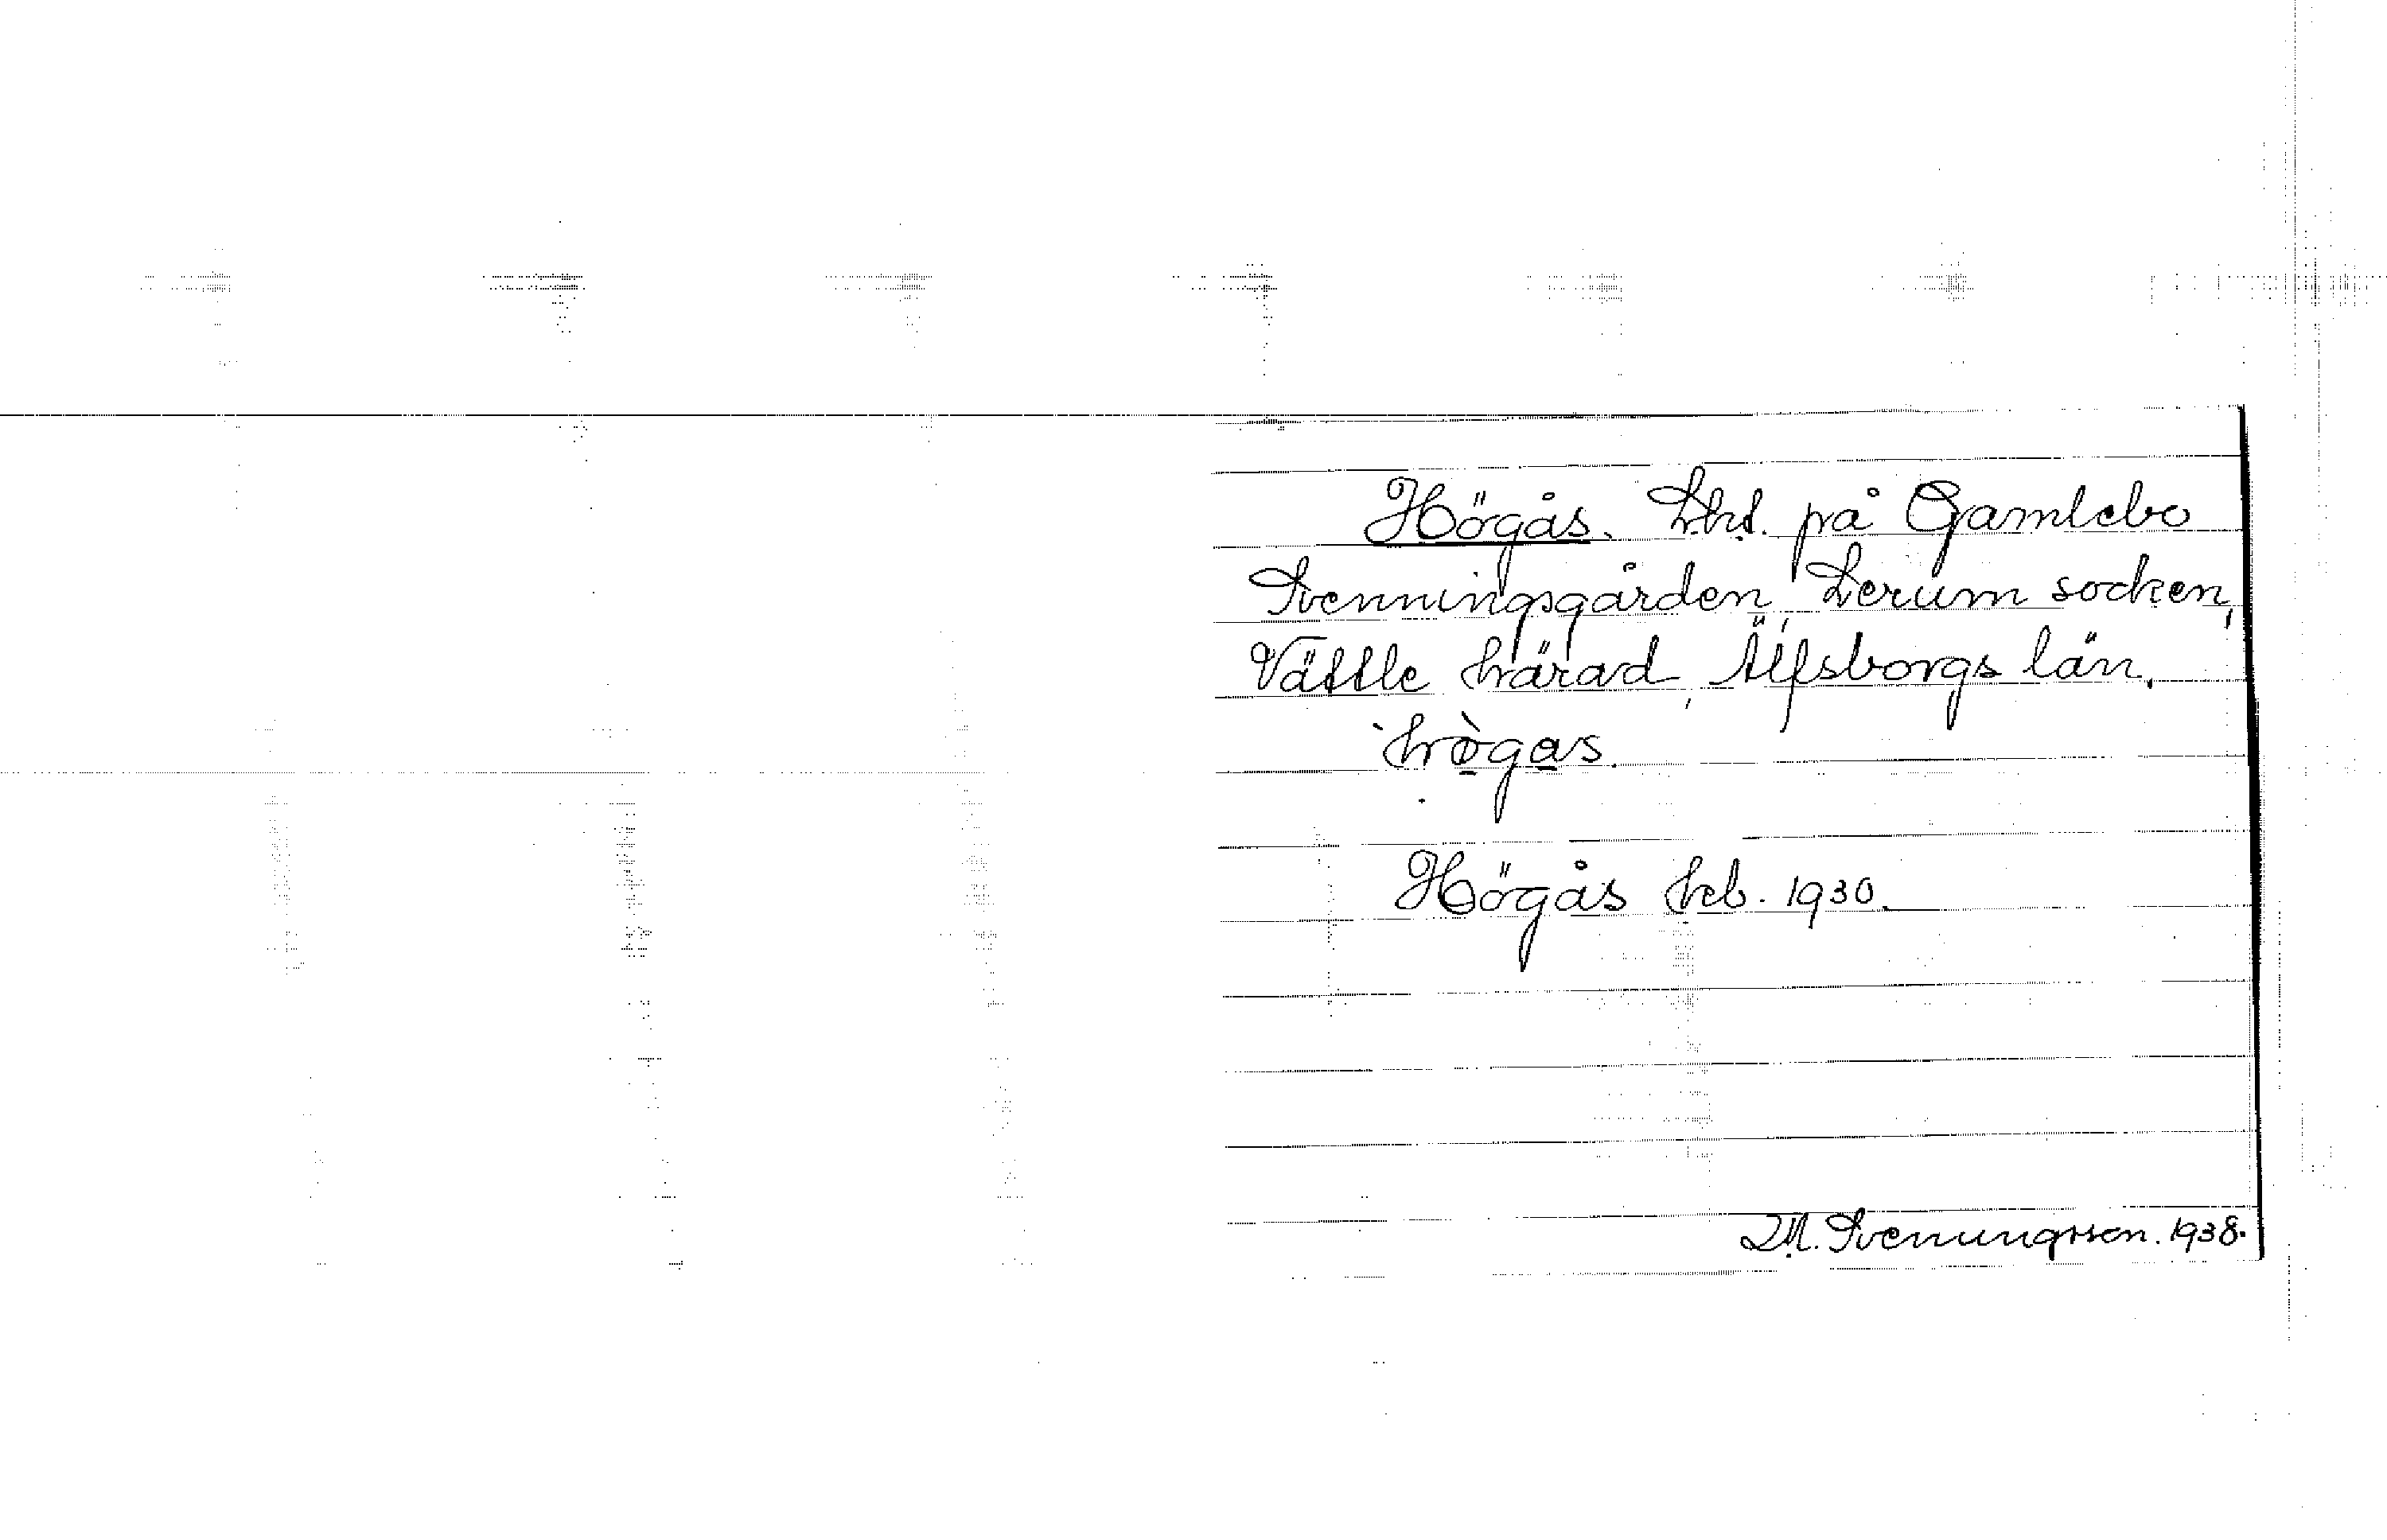 Högås. Lht. på Gamlebo
Svenningsgården, Lerum socken,
Vättle härad, Älfsborgs län.
`hògas.
Högås heb. 1930.
M. Svenungsson. 1938.